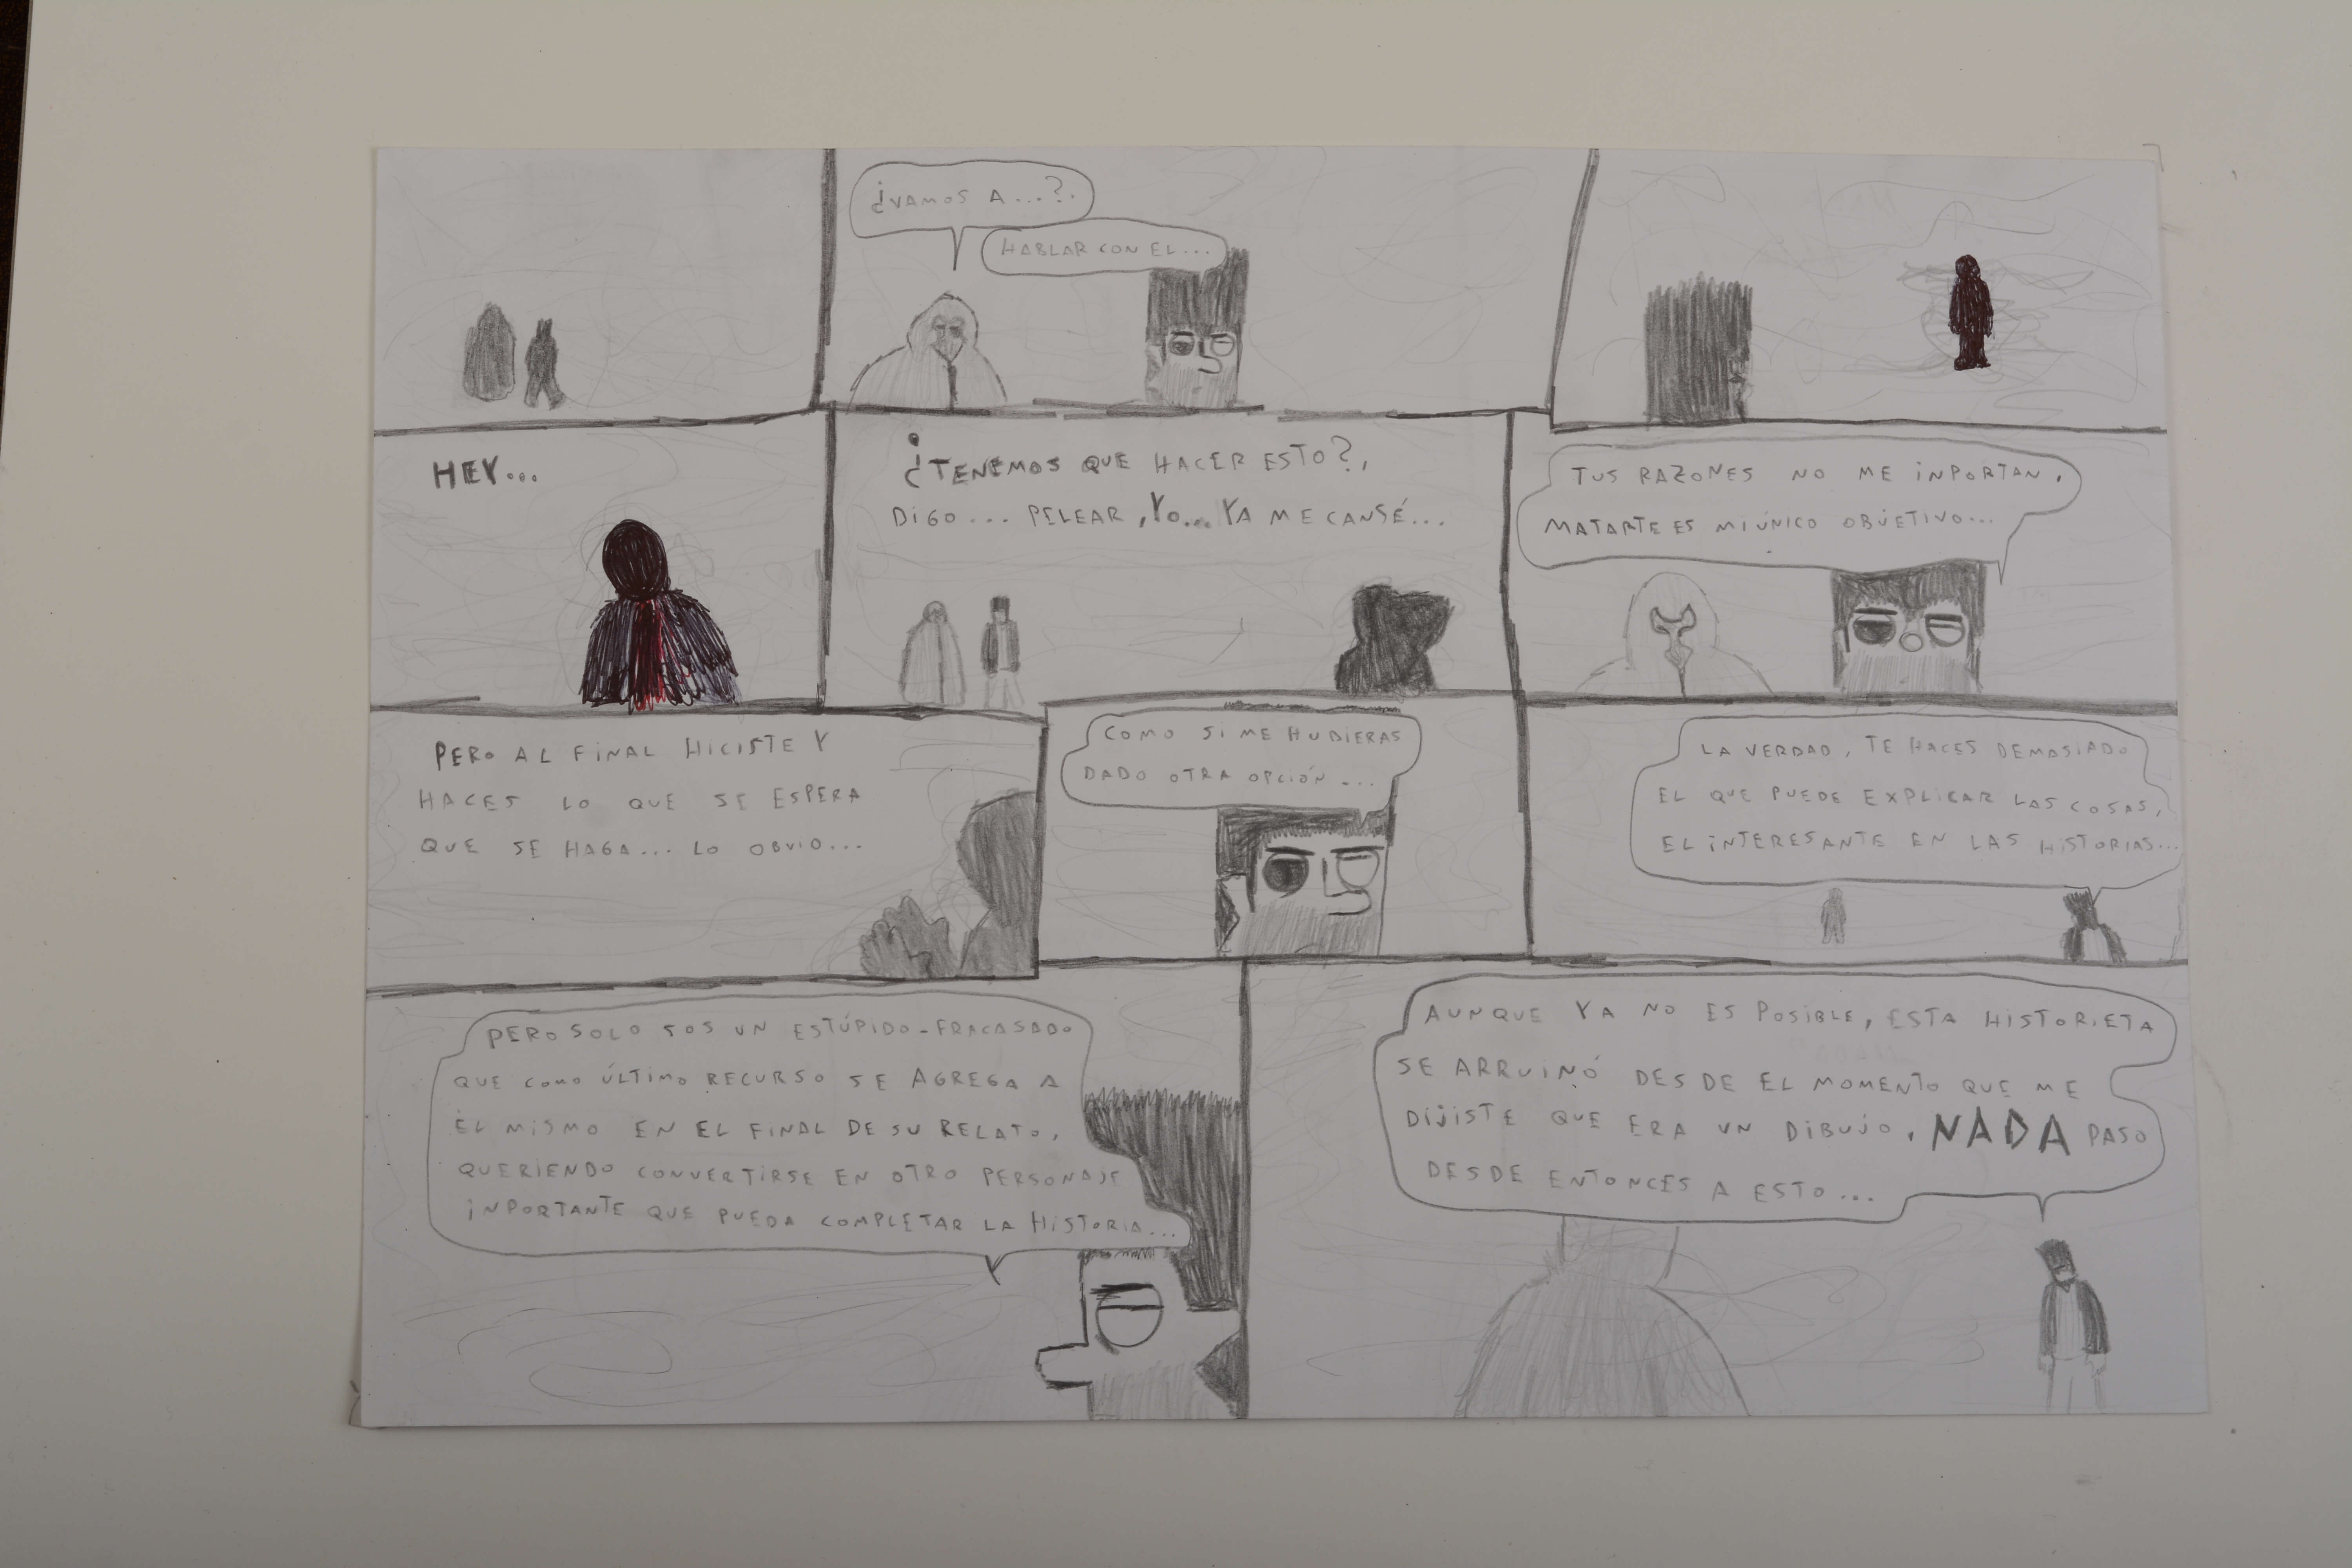 ¿VAMOS A...?
HABLAR CON EL...
HEY...
¿TENEMOS QUE HACER ESTO?,
DIGO... PELEAR, YO... YA ME CANSÉ...
TUS RAZONES NO ME INPORTAN.
MATARTE ES MI ÚNICO OBJETIVO...
PERO AL FINAL HICISTE Y
HACES LO QUE SE ESPERA
QUE SE HAGA... LO OBVIO...
COMO SI ME HUBIERAS
DADO OTRA OPCIÓN...
LA VERDAD, TE HACES DEMASIADO
EL QUE PUEDE EXPLICAR LAS COSAS,
EL INTERESANTE EN LAS HISTORIAS...
PERO SOLO SOS UN ESTÚPIDO-FRACASADO
QUE COMO ÚLTIMO RECURSO SE AGREGA A
ÉL MISMO EN EL FINAL DE SU RELATO,
QUERIENDO CONVERTIRSE EN OTRO PERSONAJE
INPORTANTE QUE PUEDA COMPLETAR LA HISTORIA...
AUNQUE YA NO ES POSIBLE, ESTA HISTORIETA
SE ARRUINÓ DESDE EL MOMENTO QUE ME
DIJISTE QUE ERA UN DIBUJO, NADA PASO
DESDE ENTONCES A ESTO...